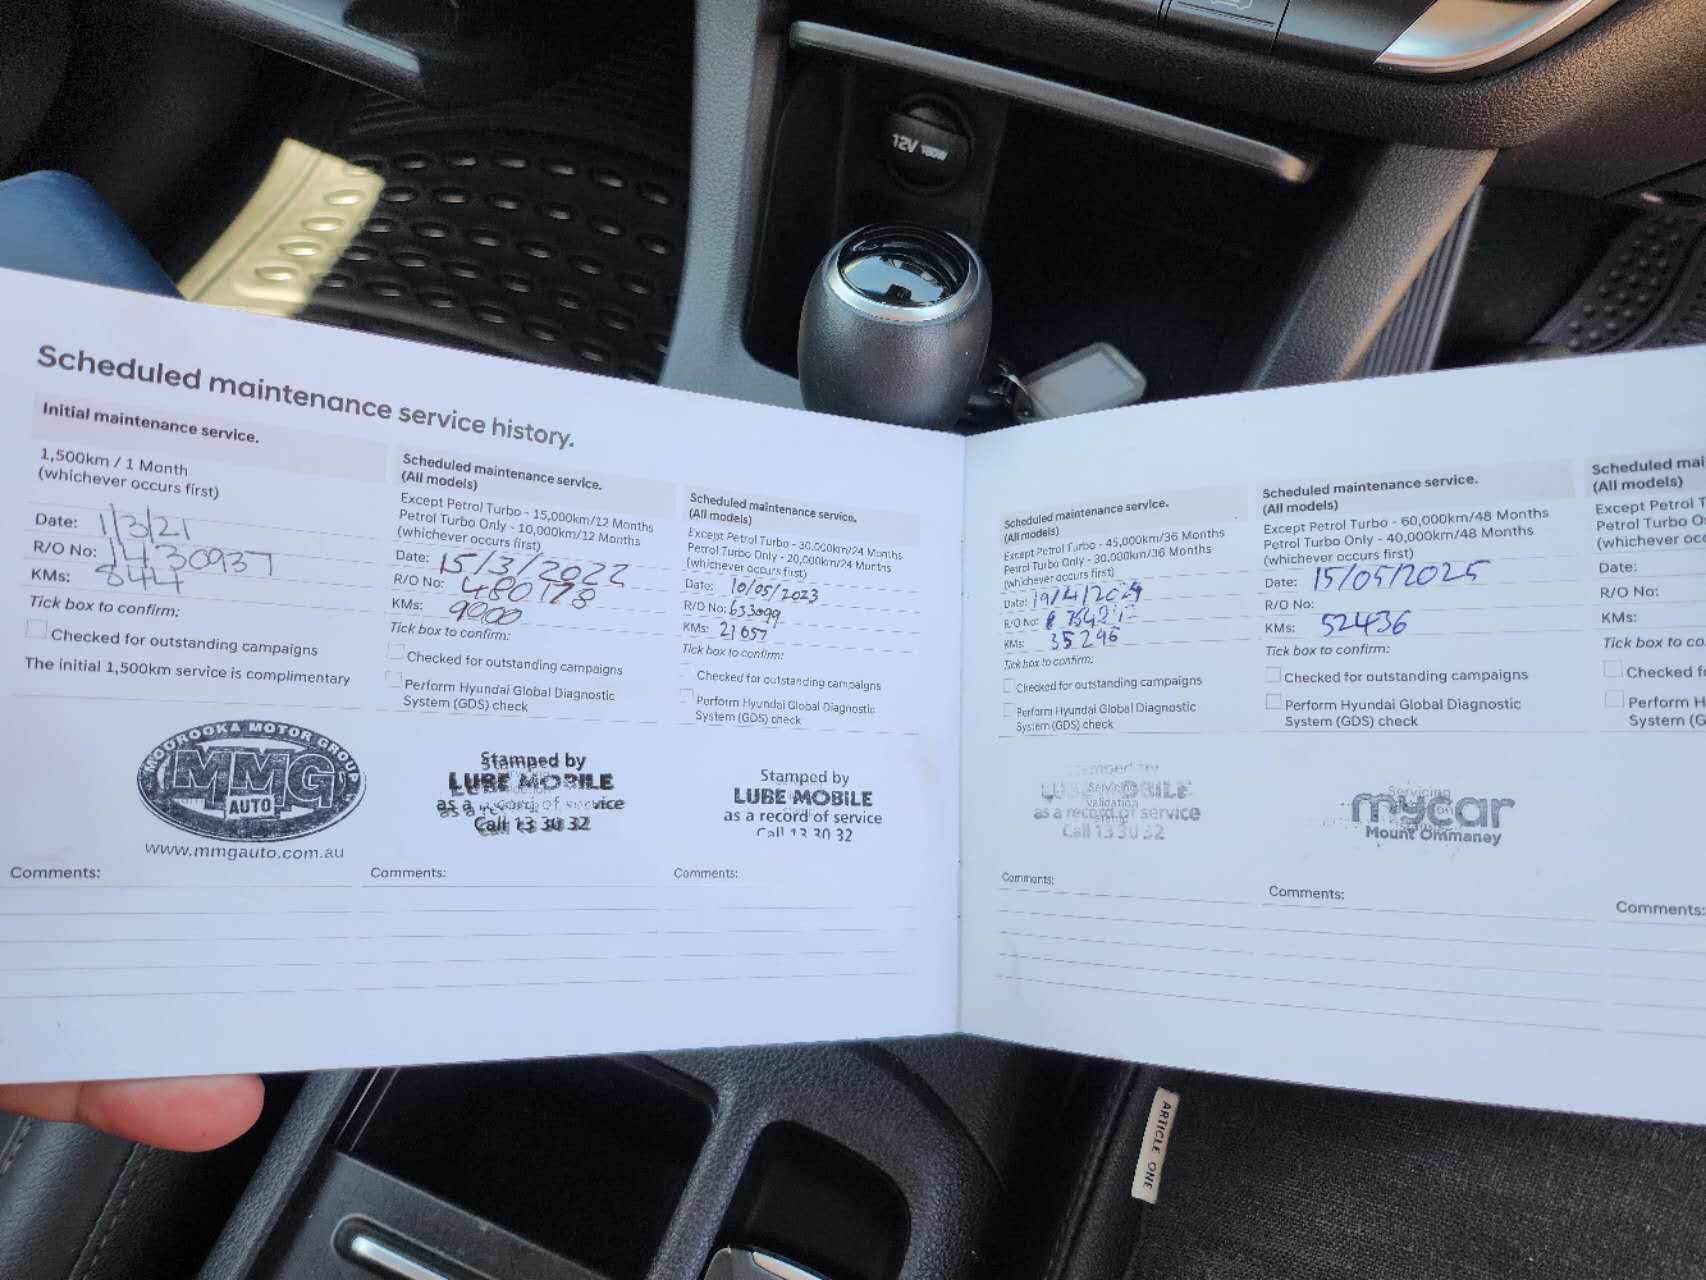 12V 180W
Scheduled maintenance service history.
Initial maintenance service.
1,500km / 1 Month
(whichever occurs first)
Date: 1/3/21
R/O No: 1430937
KMs: 844
Tick box to confirm:
Checked for outstanding campaigns
The initial 1,500km service is complimentary
MOOROOKA MOTOR GROUP
MMG
AUTO
www.mmgauto.com.au
Comments:
Scheduled maintenance service.
(All models)
Except Petrol Turbo - 15,000km/12 Months
Petrol Turbo Only - 10,000km/12 Months
(whichever occurs first)
Date: 15/3/2022
R/O No: 480178
KMs: 9000
Tick box to confirm:
Checked for outstanding campaigns
Perform Hyundai Global Diagnostic
System (GDS) check
Stamped by
LUBE MOBILE
as a record of service
Call 13 30 32
Comments:
Scheduled maintenance service.
(All models)
Except Petrol Turbo - 30,000km/24 Months
Petrol Turbo Only - 20,000km/24 Months
(whichever occurs first)
Date: 10/05/2023
R/O No: 633099
KMs: 21657
Tick box to confirm:
Checked for outstanding campaigns
Perform Hyundai Global Diagnostic
System (GDS) check
Stamped by
LUBE MOBILE
as a record of service
Call 13 30 32
Comments:
Scheduled maintenance service.
(All models)
Except Petrol Turbo - 45,000km/36 Months
Petrol Turbo Only - 30,000km/36 Months
(whichever occurs first)
Date: 19/4/2024
R/O No:
KMs: 35296
Tick box to confirm:
Checked for outstanding campaigns
Perform Hyundai Global Diagnostic
System (GDS) check
Stamped by
LUBE MOBILE
Servicing
validation
as a record of service
Call 13 30 32
Comments:
Scheduled maintenance service.
(All models)
Except Petrol Turbo - 60,000km/48 Months
Petrol Turbo Only - 40,000km/48 Months
(whichever occurs first)
Date: 15/05/2025
R/O No:
KMs: 52436
Tick box to confirm:
Checked for outstanding campaigns
Perform Hyundai Global Diagnostic
System (GDS) check
Servicing
mycar
Mount Ommaney
Comments:
Scheduled mai
(All models)
Except Petrol T
Petrol Turbo O
(whichever occ
Date:
R/O No:
KMs:
Tick box to co
Checked fo
Perform H
System (G
Comments:
ARTICLE ONE